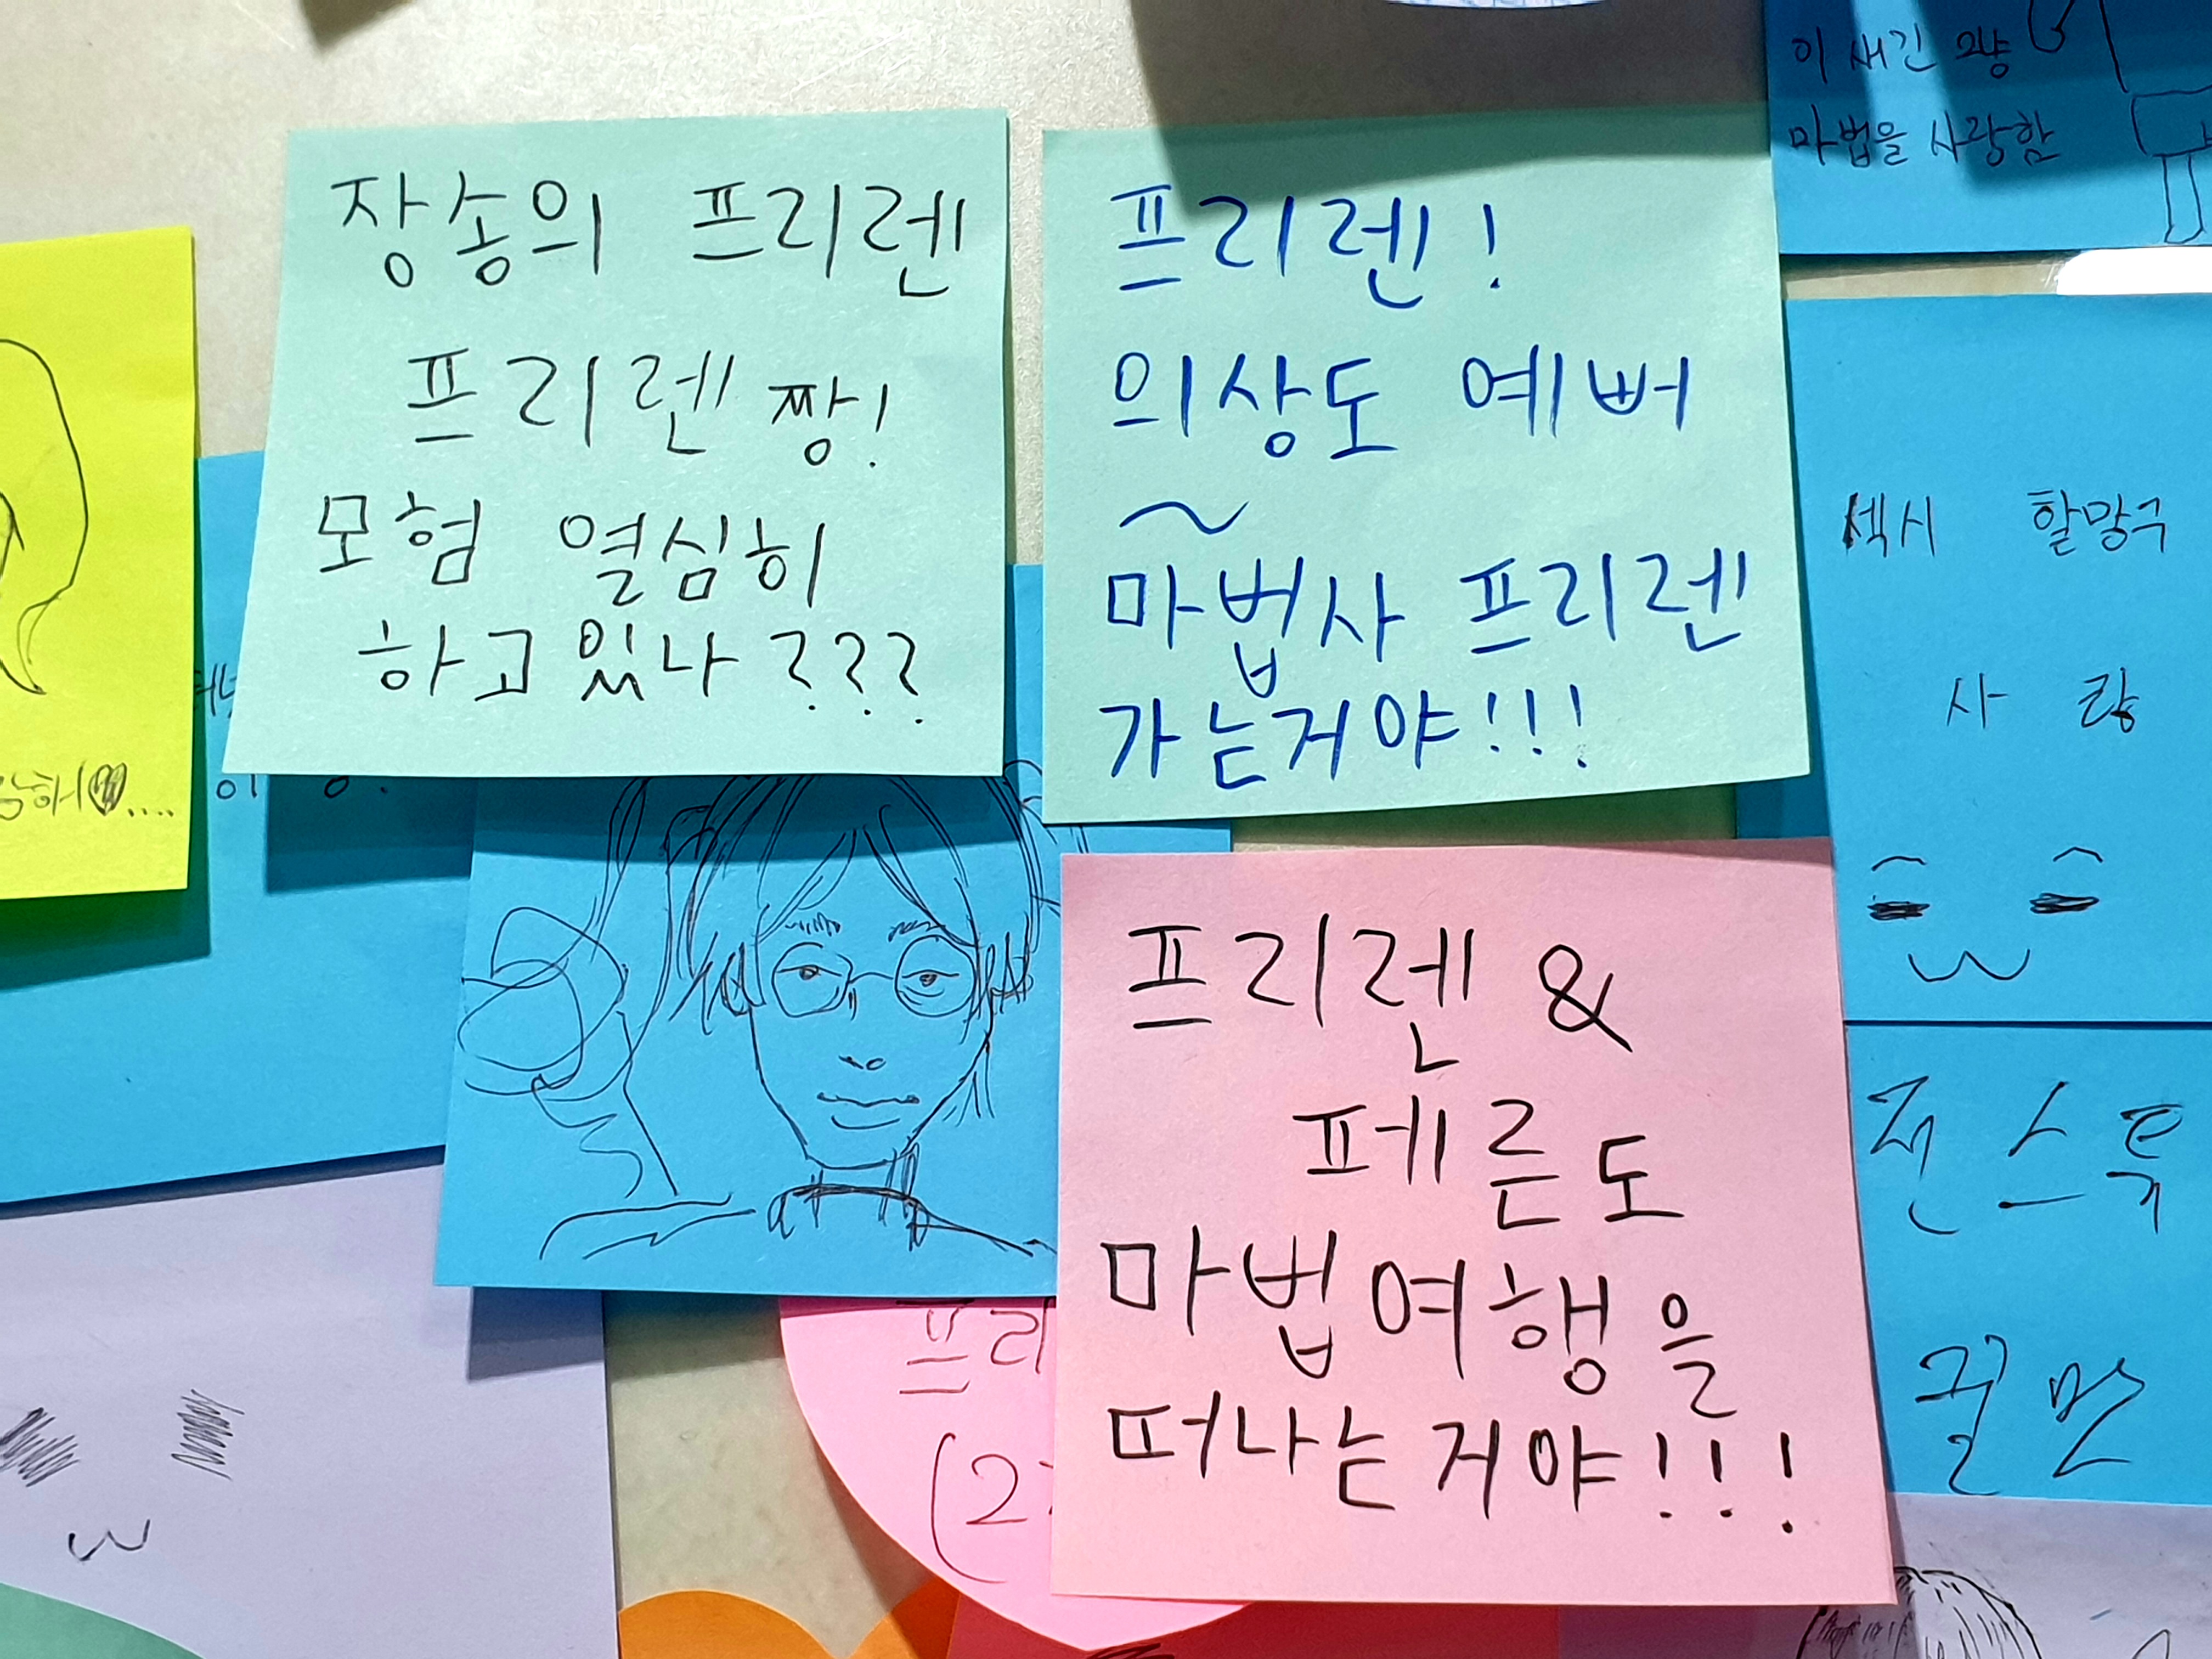 장송의 프리렌
프리렌 짱!
모험 열심히
하고있나???
프리렌!
의상도 예뻐
~
마법사 프리렌
가는거야!!!
이 새긴 걍
마법을 사랑함
섹시 할망구
사랑
프리렌 &
페른도
마법여행을
떠나는거야!!!
프리
(2